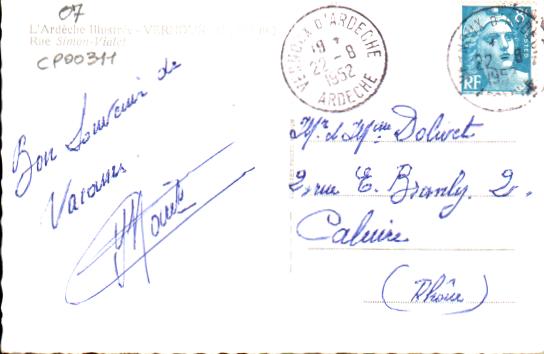 07
L'Ardèche Illustrée - VERNOUX
Rue Simon-Vialet
CP00311
Bon Souvenir de
Vacances
VERNOUX D'ARDECHE
19 *
22 - 8
1952
ARDECHE
22 - 8
1952
POSTES
RF
Mr et Mme Dolivet
2, rue E. Branly. 2.
Caluire
(Rhône)